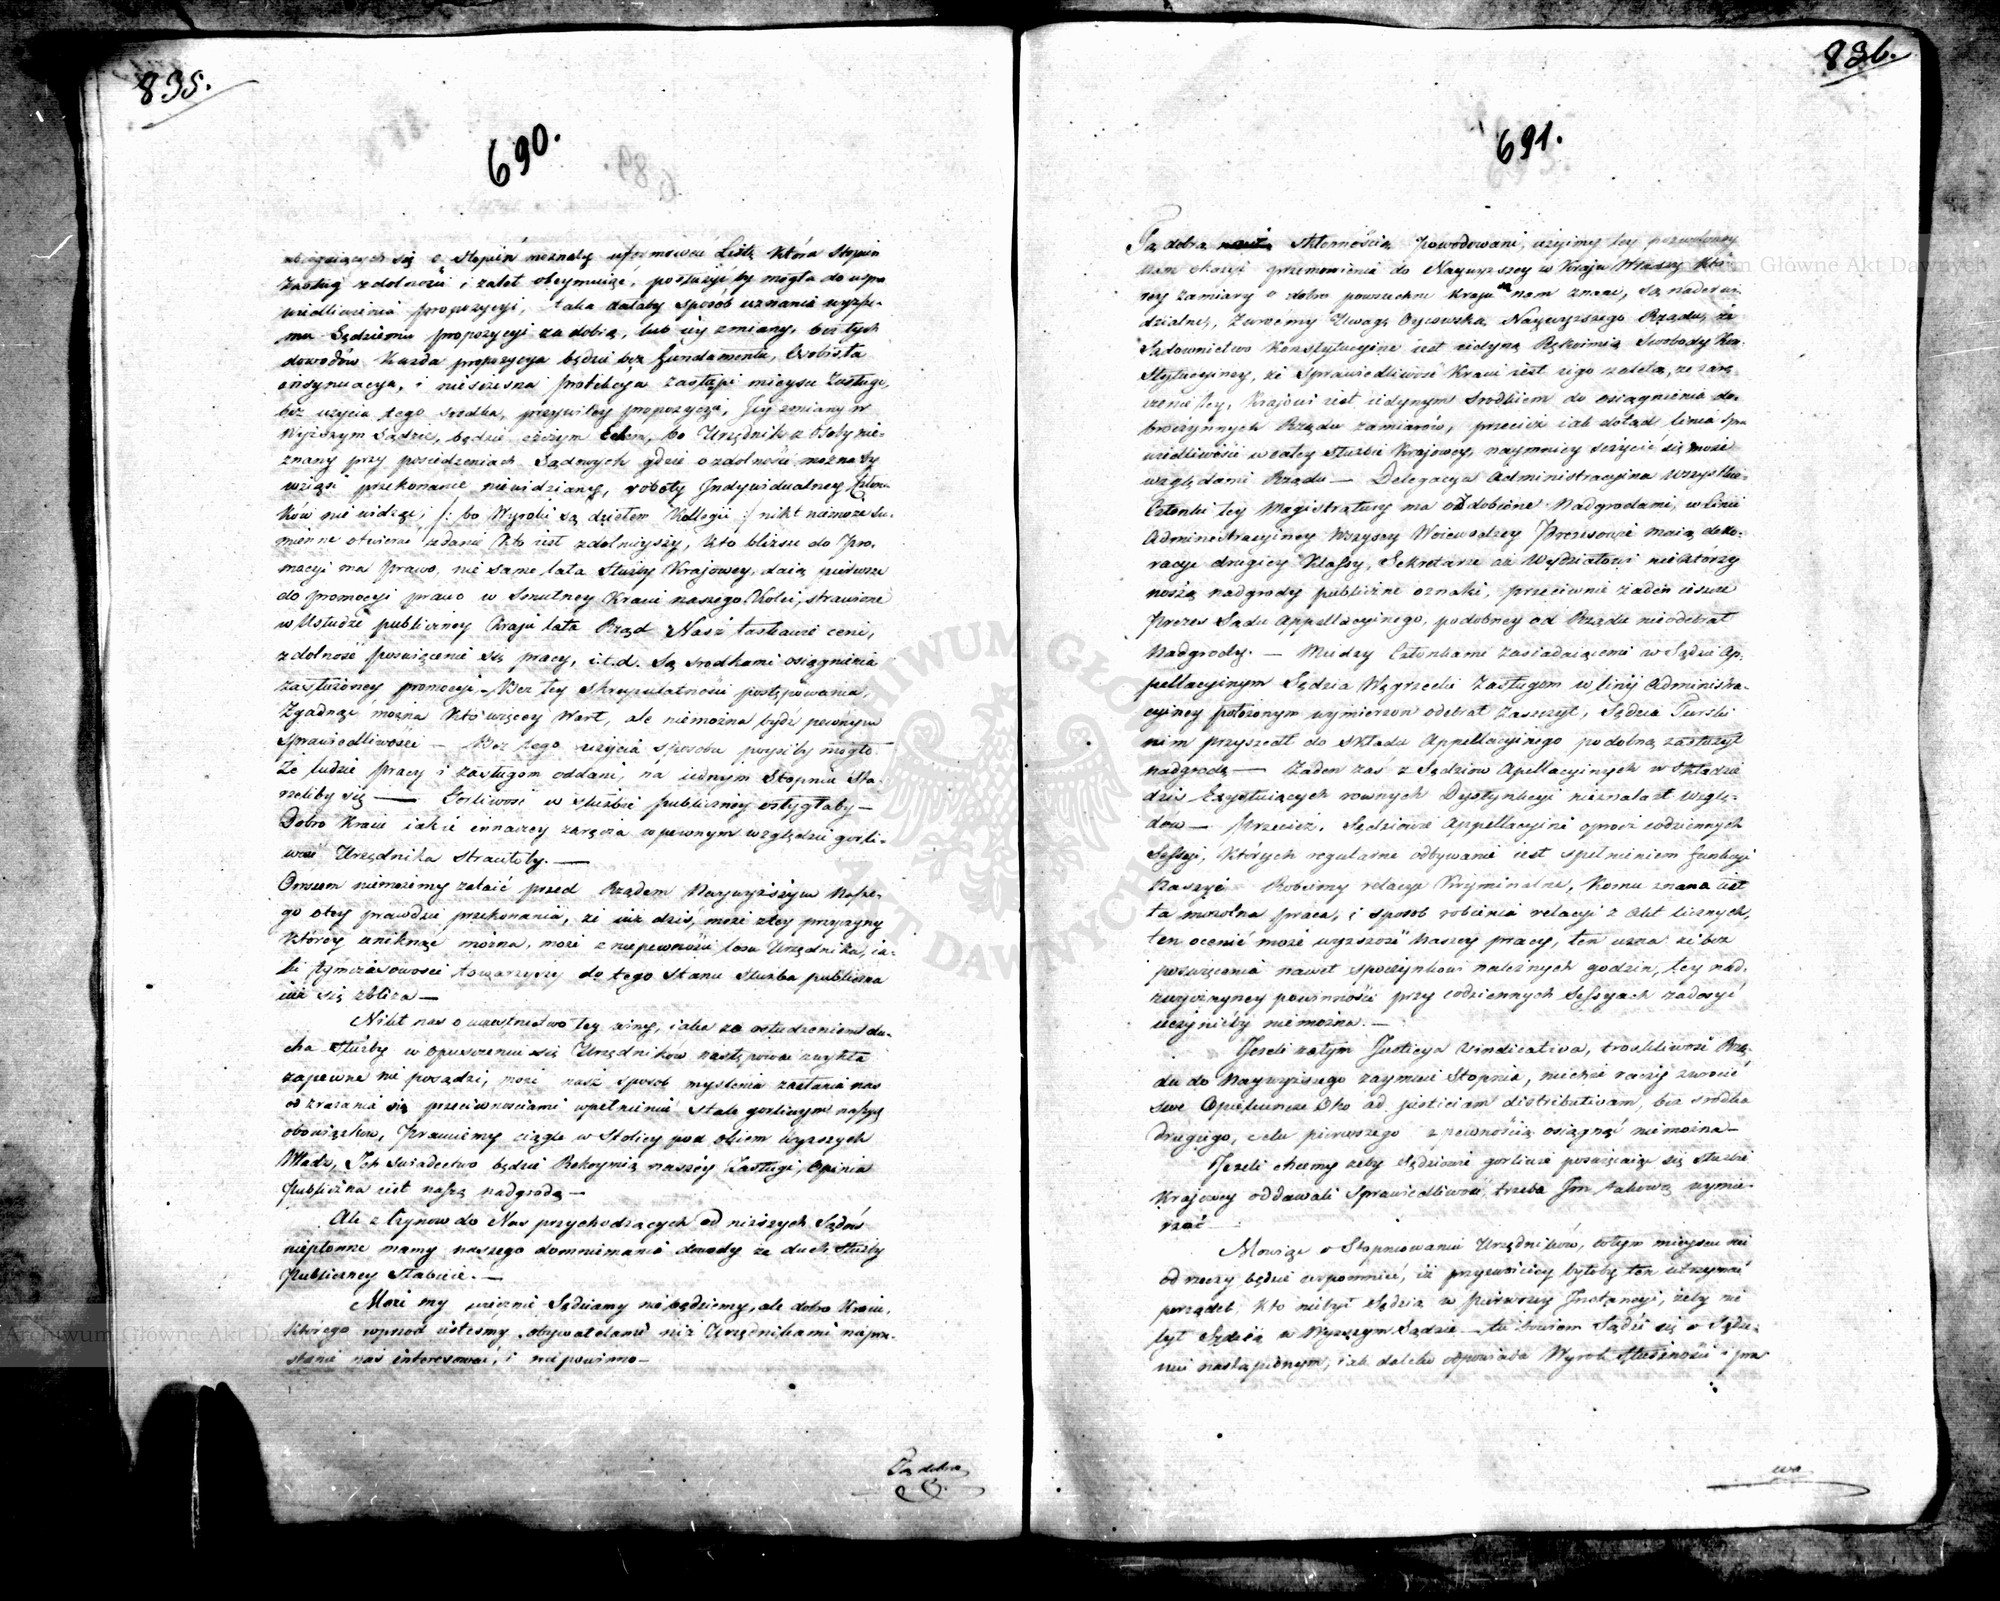 835.
690.
ubiegaiących się o Stopień poznały uformować Listę która Stopień
Zasług zdolności i zalet obeymuiąc, posłużyć by mogła do uspra
wiedliwienia propozycyi, taka dałaby sposób uznania wyższe-
mu Sędziemu propozycyi za dobrą, lub iey zmiany, bez tych
dowodów każda propozycya będzie bez fundamentu, Osobista
insynuacya, i nieszczesna protekcya zastąpi mieysce Zasługi,
bez użycia tego srodka, przywiley propozycyi, Jey zmiany w
Wyższym Sądzie, będzie czczym Echem, bo Urzędnik z Osoby nie-
znany przy posiedzeniach Sądowych gdzie o zdolności można by
wziąść przekonanie niewidziany, roboty Indywidualney Człon-
ków nie widząc, /: bo Wyroki są dziełem Kollegii :/ nikt niemoże su-
miennie otwierać zdania kto iest zdolnieyszy, kto bliższe do Pro-
mocyi ma prawo, nie same lata Służby Kraiowey, daią pierwsze
do promocyi prawo w Smutney Kraiu naszego Kolei, strawione
w Usłudze publiczney Kraiu lata Rząd Nasz łaskawie ceni,
zdolność poswięcenie się pracy, i.t.d. Są srodkami osiągnienia
zasłużoney promocyi – Bez tey skrupulatności postępowania,
Zgadnąć można kto więcey Wart, ale niemożna bydź pewnym
Sprawiedliwości – Bez tego użycia sposobu przyśćby mogło
Że ludzie pracy i zasługom oddani, na iednym Stopniu Sta-
rzeliby się — Gorliwość w służbie publiczney ostygłaby –
Dobro Kraiu iakie innaczey zaręcza w pewnym względzie gorli-
wość Urzędnika straciłoby. —
Owszem niemożemy zataić przed Rządem Naywyższym Nasze-
go otey prawdzie przekonania, że iuż dziś, może z tey przyczyny
którey uniknąć można, może z niepewności losu Urzędnika, ia-
ki tymczasowości towarzyszy do tego stanu służba publiczna
iuż się zbliża –
Nikt nas o uczestnictwo tey winy, iaka za ostudzeniem du-
cha służby w opuszczeniu się Urzędników następować zwykła
zapewne nie posądzi, może nasz sposób myslenia zasłania nas
od zrażania się przeciwnościami wpełnieniu stale gorliwym naszych
obowiązków, Pracuiemy ciągle w Stolicy pod okiem wyższych
Władz, Ich świadectwo będzie Rekoymią naszey Zasługi, Opinia
Publiczna iest naszą nadgrodą –
Ale z Czynow do Nas przychodzących od niższych Sądów
niepłonne mamy naszego domniemania dowody że duch Służby
Publiczney słabieie. –
Może my wiecznie Sędziamy nie będziemy, ale dobro Kraiu,
którego wprzód iestesmy obywatelami niż Urzędnikami nieprze-
stanie nas interesować, i niepowinno –
Tą dobra
836.
691.
Tą dobra skłonnością Powodowani, użyimy tey pozwoloney
Nam okazyi przemowienia do Naywyższey w Kraiu Władzy któ-
rey zamiary o dobro powszechne Kraiu są nam znane, są nader wi-
dzialne, Zwróćmy Uwagę Oycowską Naywyższego Rządu, że
Sądownictwo Konstytucyine iest iedyną Rękoimią Swobody Kon-
stytucyiney, że Sprawiedliwość Kraiu iest iego zaletą, że zarę-
czenie tey, Kraiowi iest iedynym srodkiem do osiągnienia do-
broczynnych Rządu zamiarów, przecież iak dotąd linia Spra
wiedliwości w całey służbie Kraiowey, naymniey szczycić się może
względami Rządu — Delegacya Administracyina wszystkie
Członki tey Magistratury ma ozdobione Nadgrodami, w linii
Administracyiney Wszyscy Woiewódzcy Prezesowie maią deko-
racye drugiey Klassy, Sekretarze ich Wydziałowi niektórzy
noszą nadgrody publiczne oznaki, przeciwnie żaden iescze
Prezes Sądu Appellacyinego, podobney od Rządu nieodebrał
Nadgrody. – Miedzy Członkami zasiadaiącemi w Sądzie Ap-
pellacyinym Sędzia Węgrzecki Zasługom w linij Administra-
cyiney położonym wymierzon odebrał zaszczyt, Sędzia Turski
nim przyszedł do składu Appellacyinego podobną zasłużył
nadgrodę — Żaden zaś z Sędziow Apellacyinych w składzie
dziś Exystuiących rownych Dystynkcyi nieznalazł wzglę-
dow — Przecież, Sędziowie Appellacyini oprocz codziennych
Sessyi, których regularne odbywanie iest spełnieniem funkcyi
Naszych Robiemy relacye Kryminalne, Komu znana iest
ta mozolna praca, i sposób robienia relacyi z Akt licznych,
ten ocenić może wyższość naszey pracy, ten uzna że bez
poswięcenia nawet spoczynkowi należnych godzin, tey nad-
zwyczayney powinności przy codziennych Sessyach zadosyć
uczynićby niemożna. –
Jezeli zatym Justicya Vindicativa, troskliwość Rzą-
du do Naywyższego zaymuie Stopnia, niechże raczy zwrocić
swe Opiekuncze Oko ad justitiam distributivam, bez srodka
drugiego, celu pierwszego z pewnością osiągnąć niemożna –
Jezeli chcemy żeby Sędziowie gorliwie poswięcaiąc się służbie
Kraiowey oddawali Sprawiedliwość, trzeba Im takową wymie-
rzać —
Mowiąc o Stopniowaniu Urzędników, wtym mieyscu nie
od rzeczy będzie wspomnieć, iż przyzwoiciey byłoby ten utrzymać
porządek, kto niebył Sędzią w pierwszey Instancyi, żeby nie
był Sędzią w Wyższym Sądzie — tu bowiem Sądzi się o Sędzi
mu nastąpionym, iak daleko odpowiada Wyrok Słuszności i pra
wa